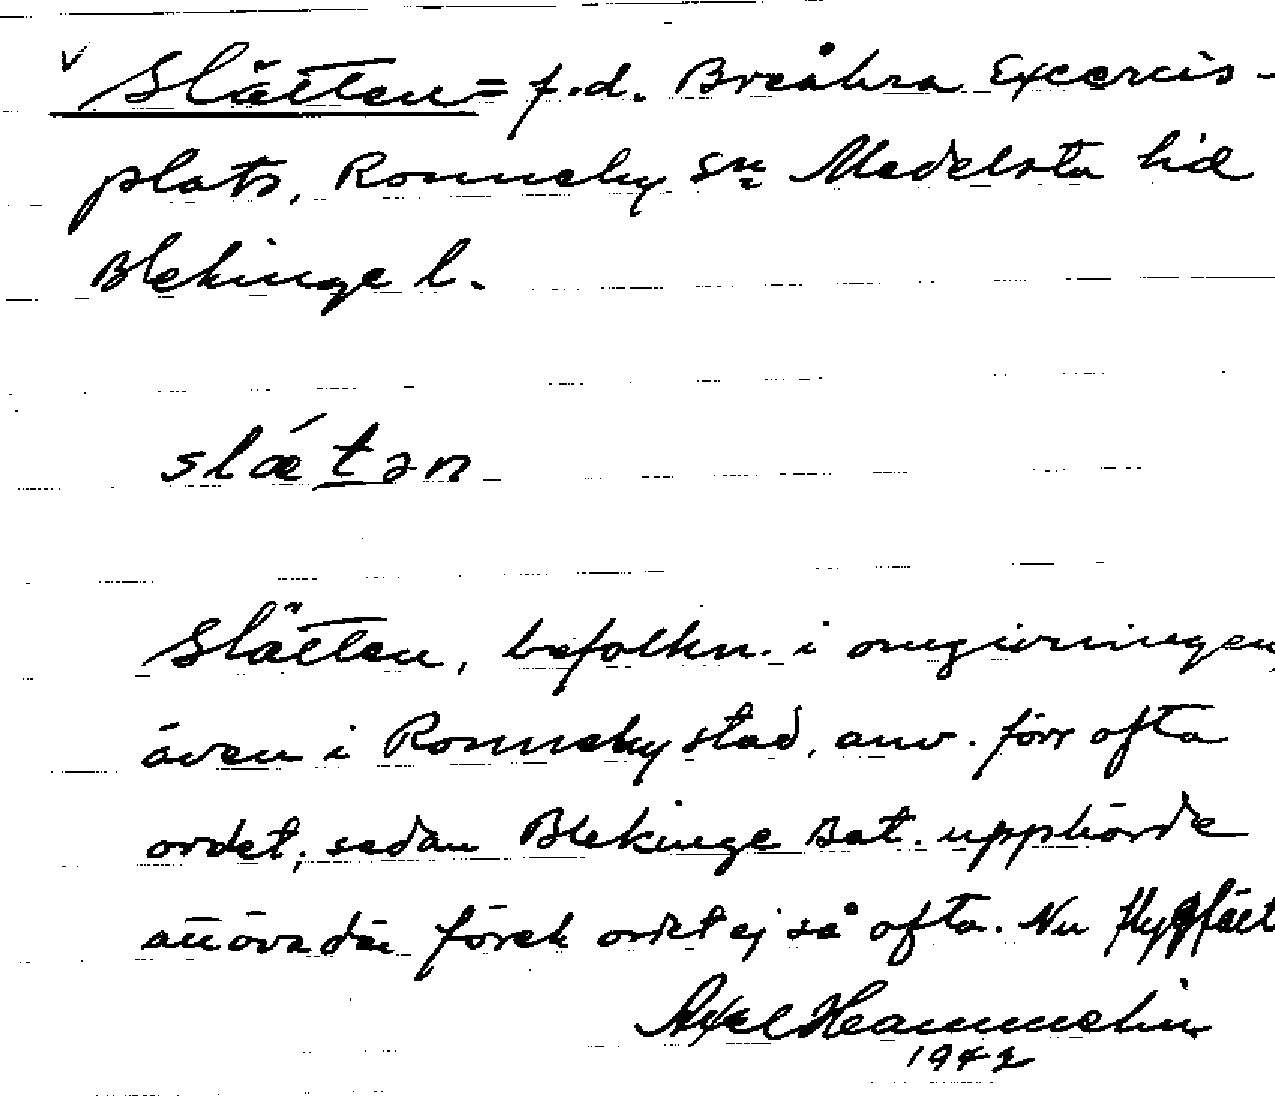 v Slätten = f.d. Breåkra Excercis-
plats, Ronneby sn Medelsta hd
Blekinge l.
slǽtən
Slätten, befolkn. i omgivningen
även i Ronneby stad, anv. förr ofta
ordet; sedan Blekinge Bat. upphörde
att öva där förek ordet ej så ofta. Nu flygfält
Axel
1942